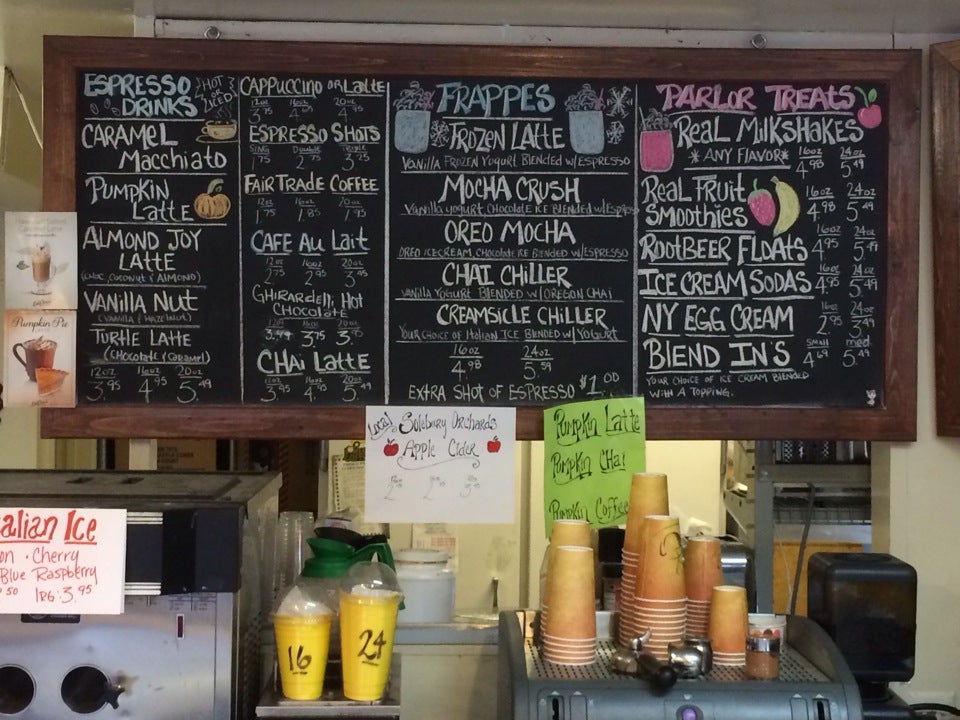 ESPRESSO DRINKS
HOT or ICED
CARAMEL
MACCHIATO
PUMPKIN
LATTE
ALMOND JOY
LATTE
(CHOC, COCONUT & ALMOND)
VANILLA NUT
(VANILLA & HAZELNUT)
TURTLE LATTE
(CHOCOLATE & CARAMEL)
12oz 16oz 20oz
3.95 4.95 5.49
CAPPUCCINO OR LATTE
12oz 16oz 20oz
ESPRESSO SHOTS
SING DOUBLE TRIPLE
1.75 2.75 3.25
FAIR TRADE COFFEE
12oz 16oz 20oz
1.75 1.85 1.95
CAFE AU LAIT
12oz 16oz 20oz
2.75 2.95 3.45
GHIRARDELLI HOT
CHOCOLATE
12oz 16oz 20oz
3.75
CHAI LATTE
12oz 16oz 20oz
3.95 4.95 5.49
FRAPPES
FROZEN LATTE
VANILLA FROZEN YOGURT BLENDED W/ESPRESSO
MOCHA CRUSH
VANILLA YOGURT, CHOCOLATE ICE BLENDED W/ESPRESSO
OREO MOCHA
OREO ICECREAM, CHOCOLATE ICE BLENDED W/ESPRESSO
CHAI CHILLER
VANILLA YOGURT BLENDED W/OREGON CHAI
CREAMSICLE CHILLER
YOUR CHOICE OF ITALIAN ICE BLENDED W/YOGURT
16oz 24oz
4.98 5.59
EXTRA SHOT OF ESPRESSO $1.00
PARLOR TREATS
REAL MILKSHAKES
*ANY FLAVOR* 16oz 24oz
4.98 5.49
REAL FRUIT
SMOOTHIES
16oz 24oz
4.98 5.49
ROOTBEER FLOATS 16oz 24oz
4.95 5.49
ICE CREAM SODAS 16oz 24oz
4.95 5.49
NY EGG CREAM 16oz 24oz
2.95 3.49
BLEND IN'S SMALL med
4.69 5.49
YOUR CHOICE OF ICE CREAM BLENDED
WITH A TOPPING.
Pumpkin Pie
Local Solebury Orchards
Apple Cider
Pumpkin Latte
Pumpkin Chai
Pumpkin Coffee
alian Ice
on · Cherry
Blue Raspberry
.50 LRG: 3.95
16
24